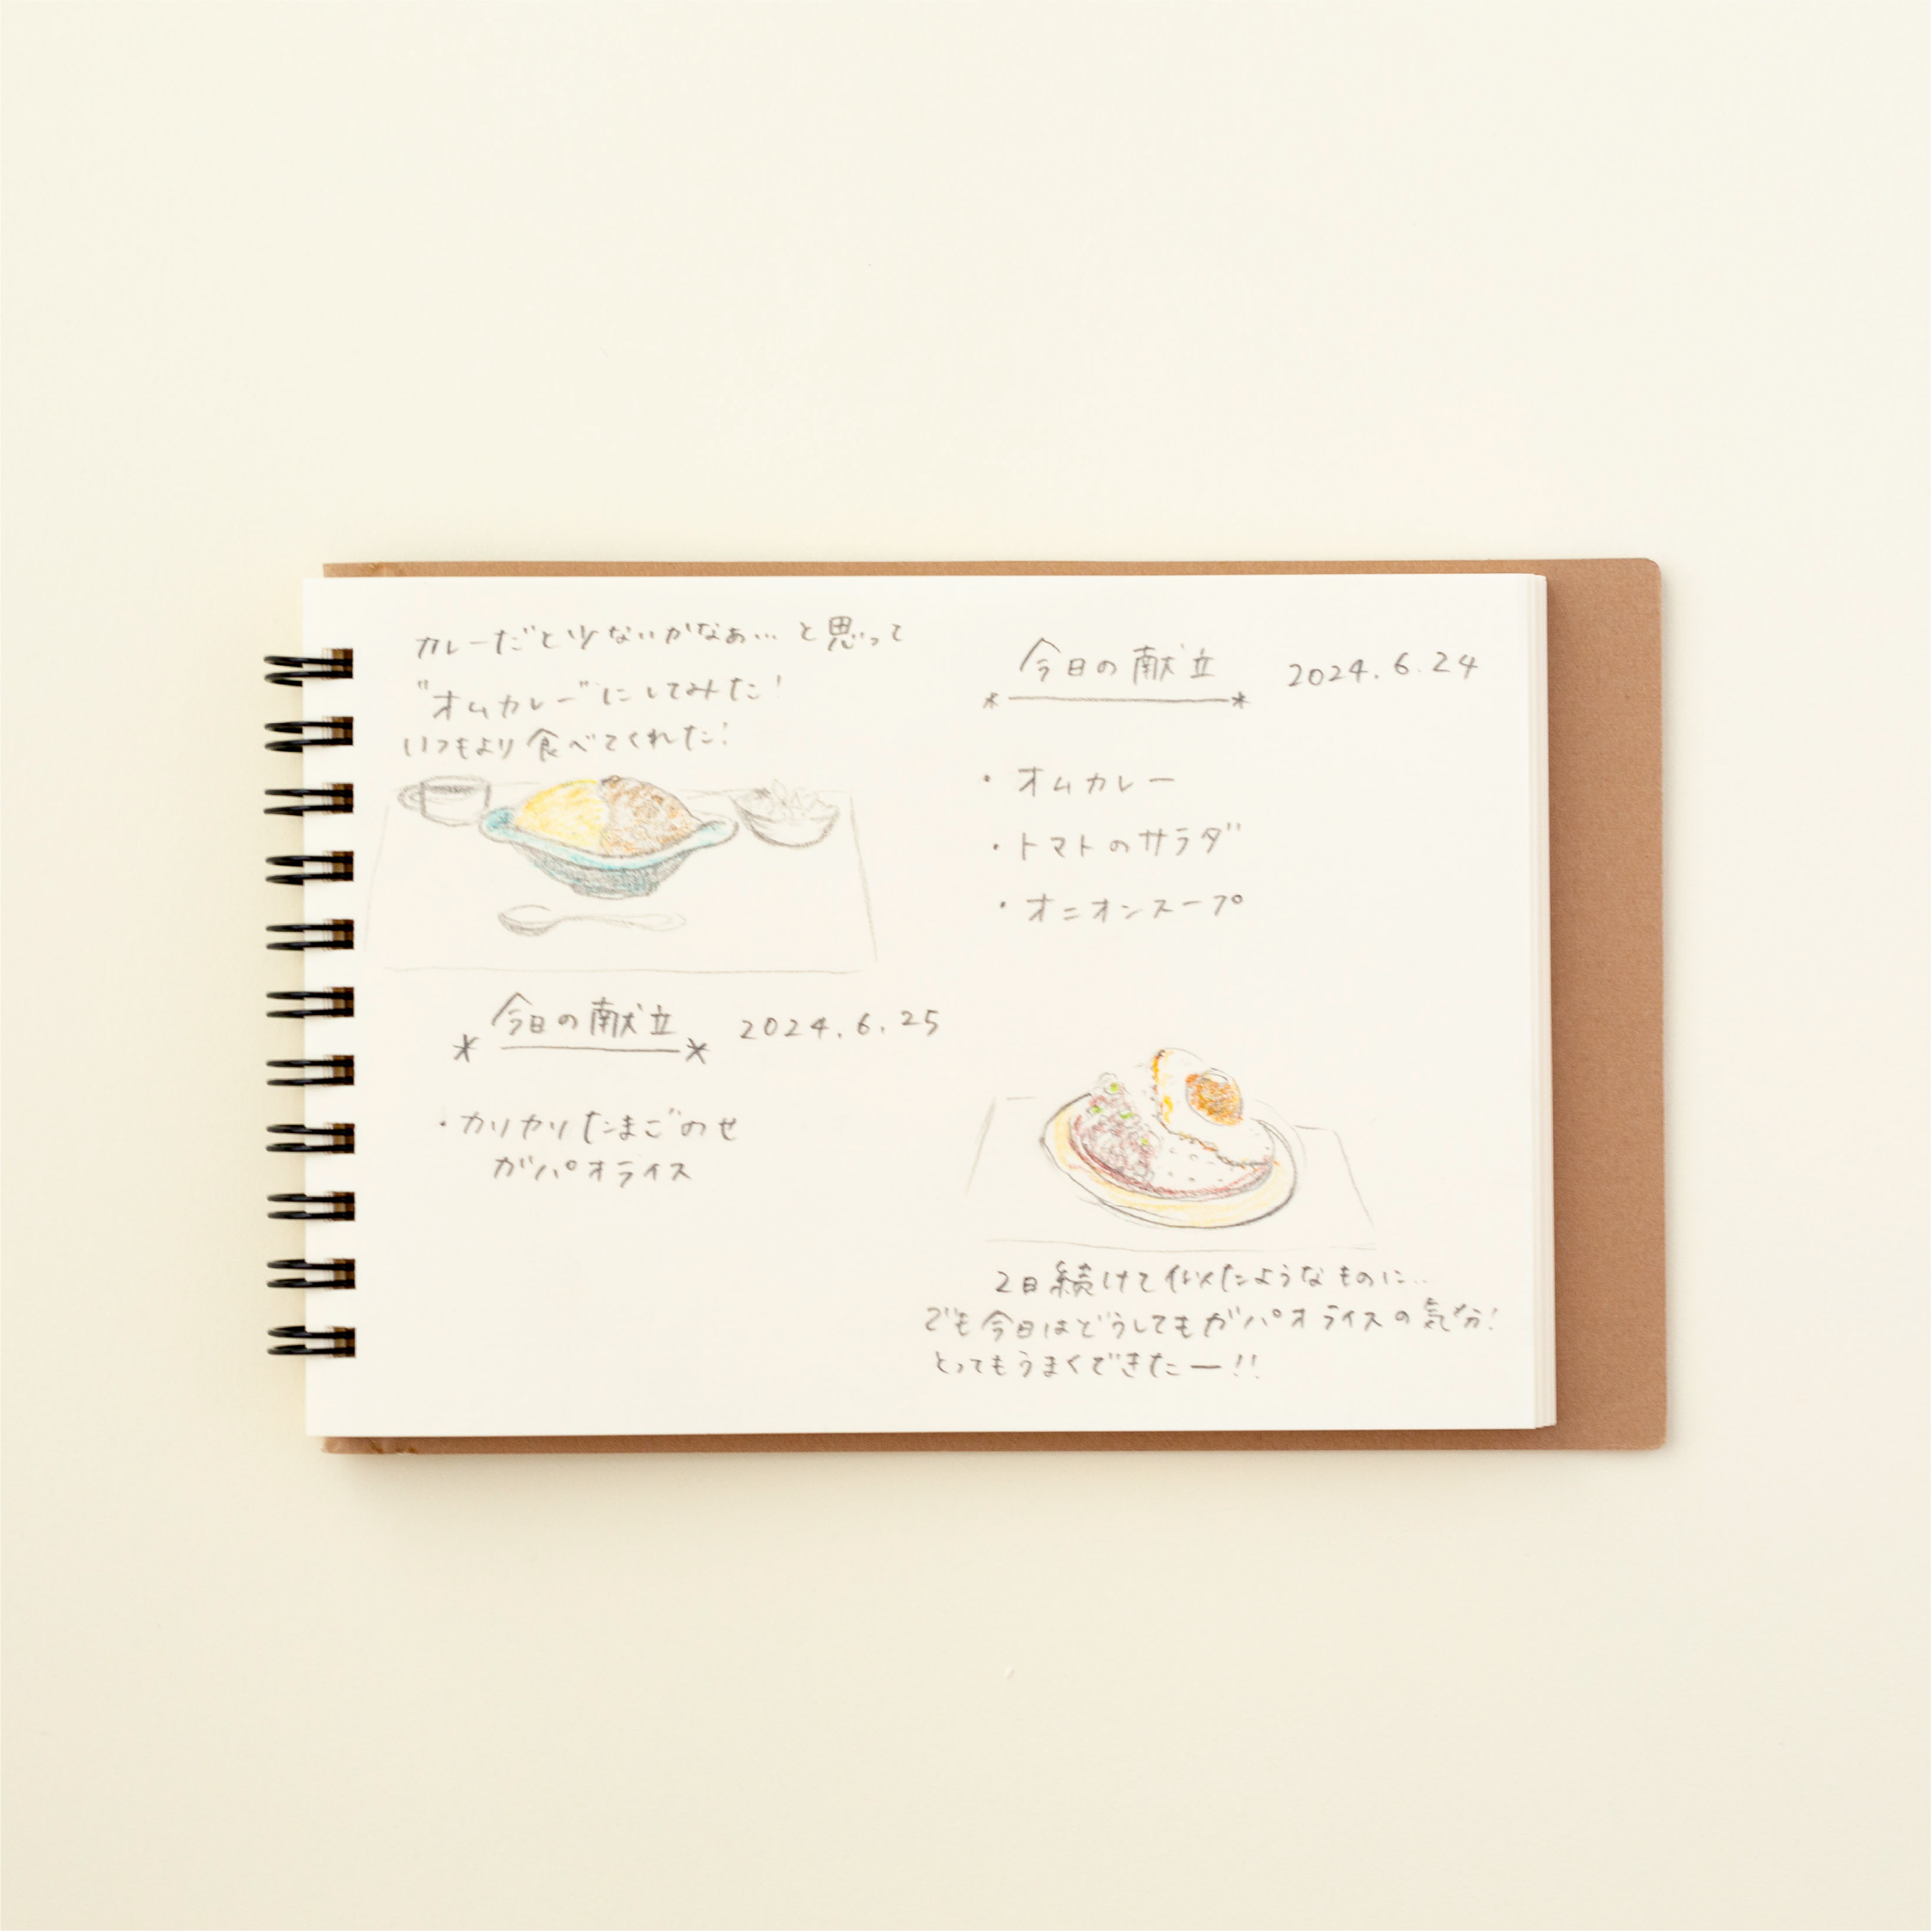 カレーだと少ないかなぁ… と思って
"オムカレー"にしてみた!
いつもより食べてくれた!
今日の献立 2024.6.24
・オムカレー
・トマトのサラダ
・オニオンスープ
今日の献立 2024.6.25
・カリカリたまごのせ
ガパオライス
2日続けて似たようなものに…
でも今日はどうしてもガパオライスの気分!
とってもうまくできたー!!